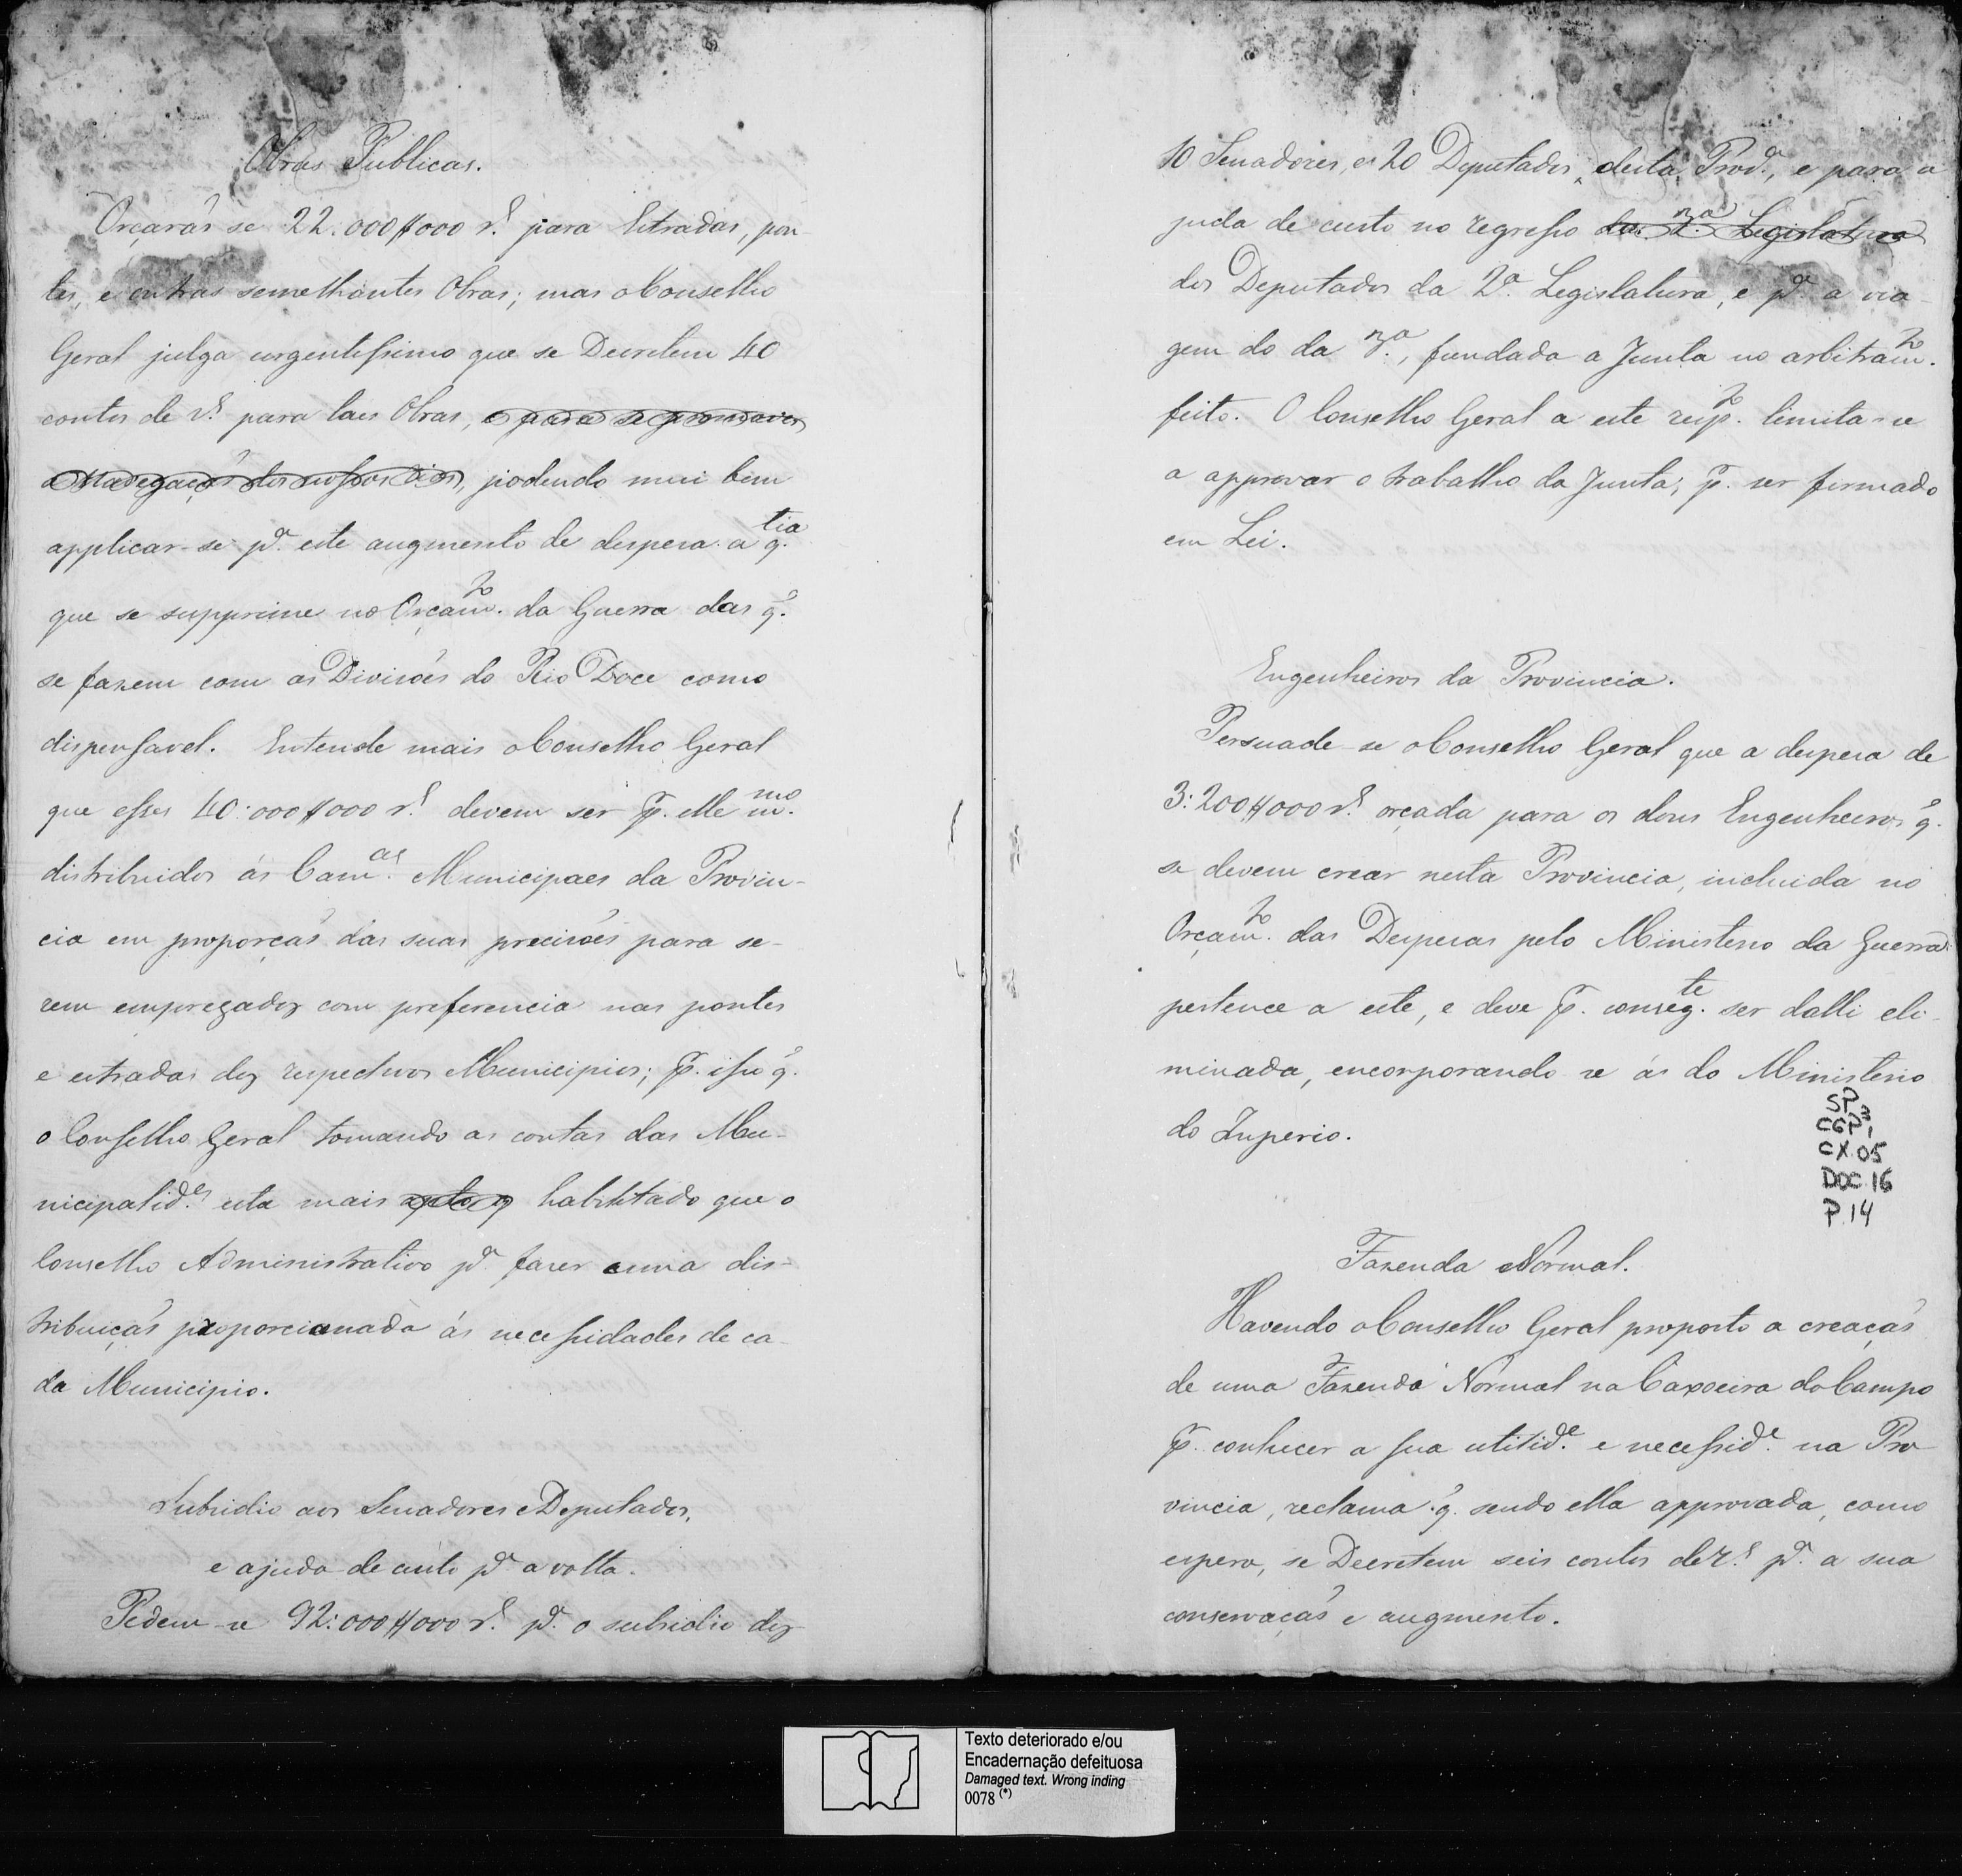 Obras Publicas.
Orçarão se 22.000$000 r.s para Estradas, pon-
tes, e outras semelhantes Obras; mas o Conselho
Geral julga urgentissimo que se Decretem 40
contos de r.s para taes Obras, e para se promover
a Navegação dos nossos Rios, podendo mui bem
applicar-se p.a este augmento de despesa a q.tia
que se supprime no Orçam.to da Guerra das q.
se fazem com as Divisões do Rio Doce como
dispensavel. Entende mais o Conselho Geral
que esses 40:000$000 r.s devem ser p. elle m.mo
distribuidos ás Cam.as Municipaes da Provin-
cia em proporção das suas precisões para se-
rem empregados com preferencia nas pontes
e estradas dos respectivos Municipios; p. isso q.
o Conselho Geral tomando as contas das Mu-
nicipalid.es esta mais habilitado que o
Conselho Administrativo p.a fazer uma dis-
tribuição proporcionada ás necessidades de ca-
da Municipio.
Subsidio aos Senadores e Deputados,
e ajuda de custo p.a a volta.
Pedem-se 92:000$000 r.s p.a o subsidio dos
10 Senadores, e 20 Deputados desta Prov.a, e para a
juda de custo no regresso da 3.a Legislatura
dos Deputados da 2.a Legislatura, e p.a a via-
gem do da 3.a, fundada a Junta no arbitram.to
feito. O Conselho Geral a este resp.to limita-se
a approvar o trabalho da Junta; p. ser firmado
em Lei.
Engenheiros da Provincia.
Persuade-se o Conselho Geral que a despesa de
3:200$000 r.s orçada para os dous Engenheiros q.
se devem crear nesta Provincia, incluida no
Orçam.to das Despesas pelo Ministerio da Guerra
pertence a este, e deve p. conseg.te ser dalli eli-
minada, encorporando se ás do Ministerio
do Imperio.
SP
CGP1
CX.05
DOC.16
P.14
Fazenda Normal.
Havendo o Conselho Geral proposto a creação
de uma Fazenda Normal na Caxoeira do Campo
p. conhecer a sua utilid.e e necessid.e na Pro-
vincia, reclama q. sendo ella approvada, como
espera, se Decretem seis contos de r.s p.a a sua
conservação e augmento.
Texto deteriorado e/ou
Encadernação defeituosa
Damaged text. Wrong inding
0078 (*)